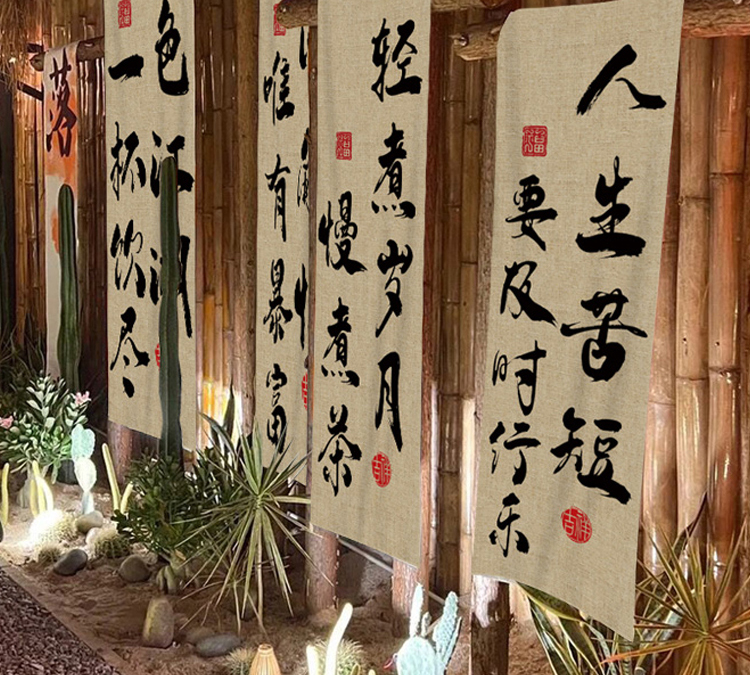 人生苦短
要及时行乐
吉祥
轻煮岁月
慢煮茶
吉祥
唯有暴富
色江湖
一杯饮尽
落